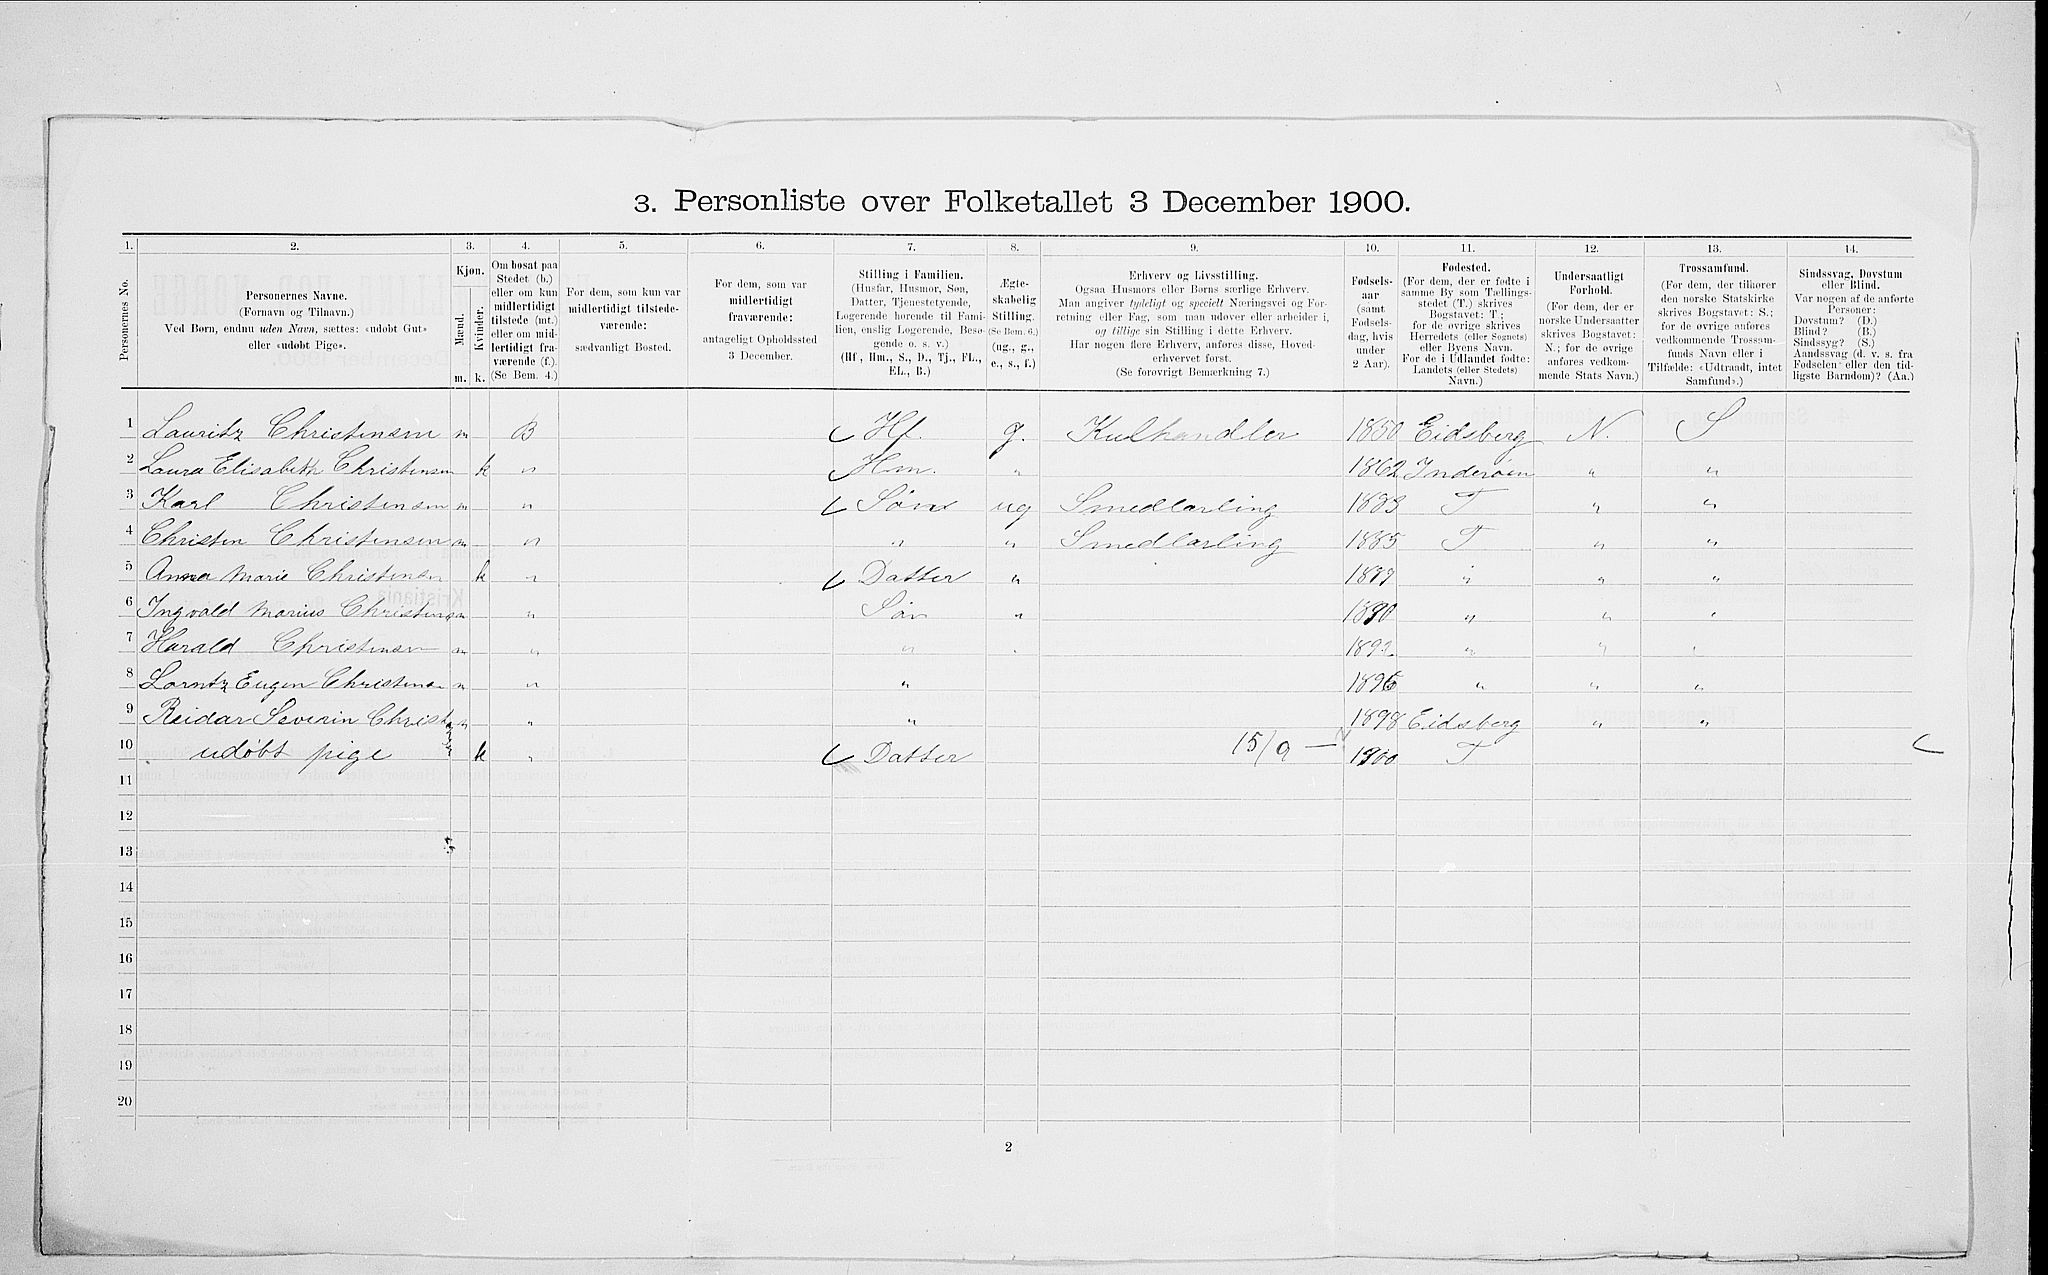 3. Personliste over Folketallet 3 December 1900.
1. 2. 3. 4. 5. 6. 7. 8. 9. 10. 11. 12. 13. 14.
Personernes No.
Personernes Navne.
(Fornavn og Tilnavn.)
Ved Børn, endnu uden Navn, sættes: «udøbt Gut»
eller «udøbt Pige».
Kjøn.
Mænd.
Kvinder.
m. k.
Om bosat paa
Stedet (b.)
eller om kun
midlertidigt
tilstede (mt.)
eller om mid-
lertidigt fra-
værende (f.)
(Se Bem. 4.)
For dem, som kun var
midlertidigt tilstede-
værende:
sædvanligt Bosted.
For dem, som var
midlertidigt
fraværende:
antageligt Opholdssted
3 December.
Stilling i Familien.
(Husfar, Husmor, Søn,
Datter, Tjenestetyende,
Logerende hørende til Fami-
lien, enslig Logerende, Besø-
gende o. s. v.)
(Hf, Hm., S., D., Tj., FL.,
EL., B.)
Ægte-
skabelig
Stilling.
(Se Bem. 6.)
(ug., g.,
e., s., f.)
Erhverv og Livsstilling.
Ogsaa Husmors eller Børns særlige Erhverv.
Man angiver tydeligt og specielt Næringsvei og For-
retning eller Fag, som man udøver eller arbeider i,
og tillige sin Stilling i dette Erhverv.
Har nogen flere Erhverv, anføres disse, Hoved-
erhvervet først.
(Se forøvrigt Bemærkning 7.)
Fødsels-
aar
(samt
Fødsels-
dag, hvis
under
2 Aar).
Fødested.
(For dem, der er fødte i
samme By som Tællings-
stedet (T.) skrives
Bogstavet: T.;
for de øvrige skrives
Herredets (eller Sognets)
eller Byens Navn.
For de i Udlandet fødte:
Landets (eller Stedets)
Navn.)
Undersaatligt
Forhold.
(For dem, der er
norske Undersaatter
skrives Bogstavet:
N.; for de øvrige
anføres vedkom-
mende Stats Navn.)
Trossamfund.
(For dem, der tilhører
den norske Statskirke
skrives Bogstavet: S.;
for de øvrige anføres
vedkommende Trossam-
funds Navn eller i
Tilfælde: «Udtraadt, intet
Samfund».)
Sindssvag, Døvstum
eller Blind.
Var nogen af de anførte
Personer:
Døvstum? (D.)
Blind? (B.)
Sindssyg? (S.)
Aandssvag (d. v. s. fra
Fødselen eller den tid-
ligste Barndom)? (Aa.)
1 Lauritz Christensen m B Hf. g. Kulhandler 1850 Eidsberg N. S
2 Laura Elisabeth Christensen k " Hm. " 1862 Inderøen " "
3 Karl Christensen m " Søn ug Smedlærling 1883 T " "
4 Christen Christensen m " " " Smedlærling 1885 T " "
5 Anna Marie Christensen k " Datter " " " "
6 Ingvald Marius Christensen m " Søn " 1890 " " "
7 Harald Christensen m " " " " " "
8 Lorntz Eugen Christensen m " " " " "
9 Reidar Severin Christensen m " " 1898 Eidsberg " "
10 udøbt pige k " Datter 15/9 — 1900 T
11
12
13
14
15
16
17
18
19
20
2